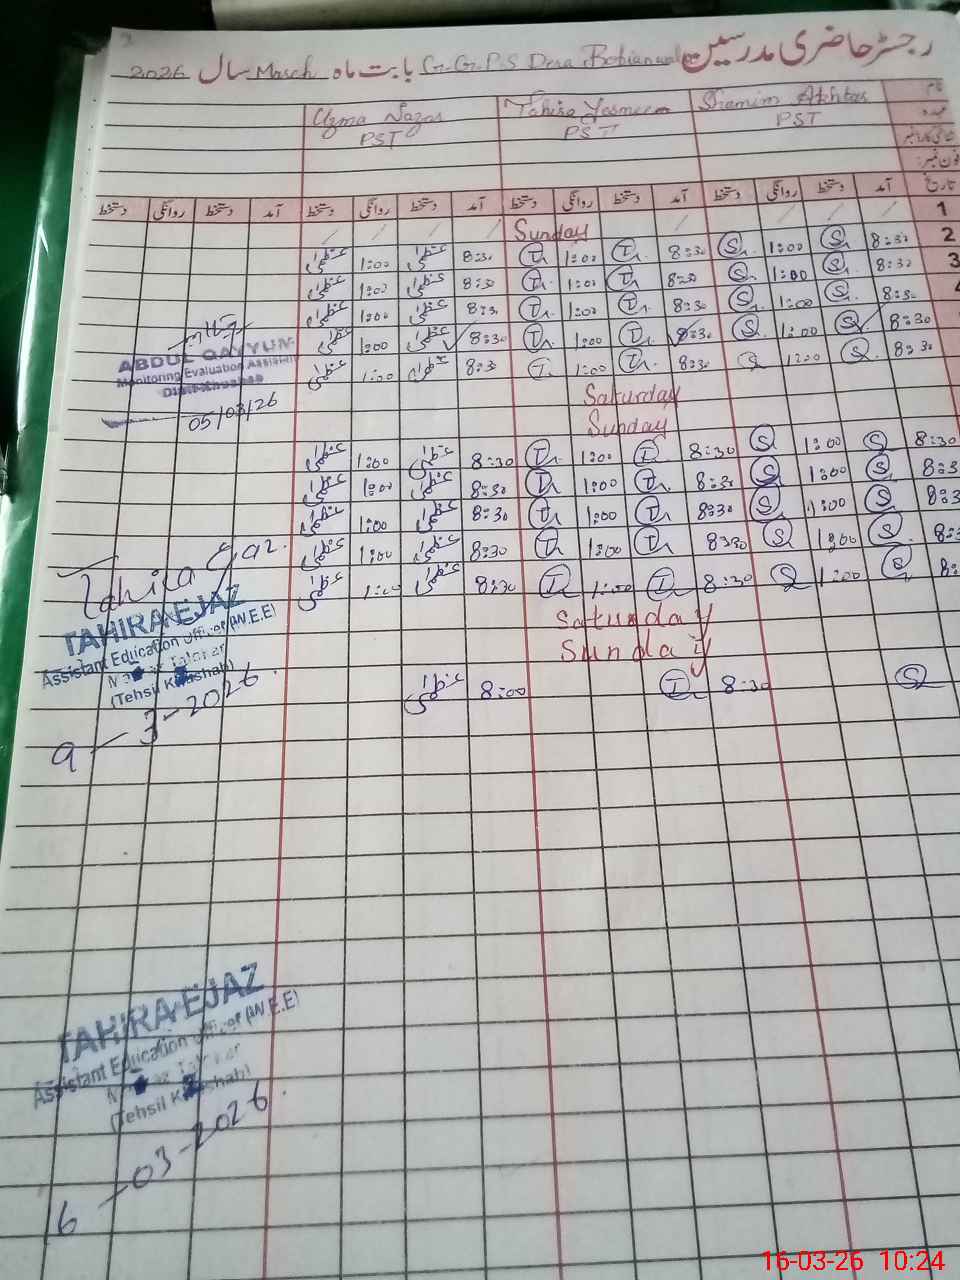 رجسٹر حاضری مدرسین G.G.P.S Dera بابت ماہ March سال 2026
نام Shamim Akhtar Tahira Yasmeen Uzma
عہدہ PST PST PST
فون نمبر:
تاریخ آمد دستخط روانگی دستخط آمد دستخط روانگی دستخط آمد دستخط روانگی دستخط آمد دستخط روانگی دستخط
1 Sunday
2 8:30 S 1:00 S 8:30 T 1:00 T 8:30 عظمیٰ 1:00 عظمیٰ
3 8:30 S 1:00 S 8:30 T 1:00 T 8:30 عظمیٰ 1:00 عظمیٰ
8:30 S 1:00 S 8:30 T 1:00 T 8:30 عظمیٰ 1:00 عظمیٰ
8:30 S 1:00 S 8:30 T 1:00 T 8:30 عظمیٰ 1:00 عظمیٰ
8:30 S 1:00 S 8:30 T 1:00 T 8:30 عظمیٰ 1:00 عظمیٰ
Saturday
Sunday
8:30 S 1:00 S 8:30 T 1:00 T 8:30 عظمیٰ 1:00 عظمیٰ
8:3 S 1:00 S 8:30 T 1:00 T 8:30 عظمیٰ 1:00 عظمیٰ
8:3 S 1:00 S 8:30 T 1:00 T 8:30 عظمیٰ 1:00 عظمیٰ
8:3 S 1:00 S 8:30 T 1:00 T 8:30 عظمیٰ 1:00 عظمیٰ
8: S 1:00 S 8:30 T 1:00 T 8:30 عظمیٰ 1:00 عظمیٰ
Saturday
Sunday
S 8:30 T 8:00 عظمیٰ
ABDUL QAYYUM
Monitoring Evaluation Assistant
05/03/26
Tahira Ejaz.
TAHIRA EJAZ
Assistant Education Officer (W.E.E)
(Tehsil Khushab)
9-3-2026.
TAHIRA EJAZ
Assistant Education Officer (W.E.E)
(Tehsil Khushab)
16-03-2026.
16-03-26 10:24